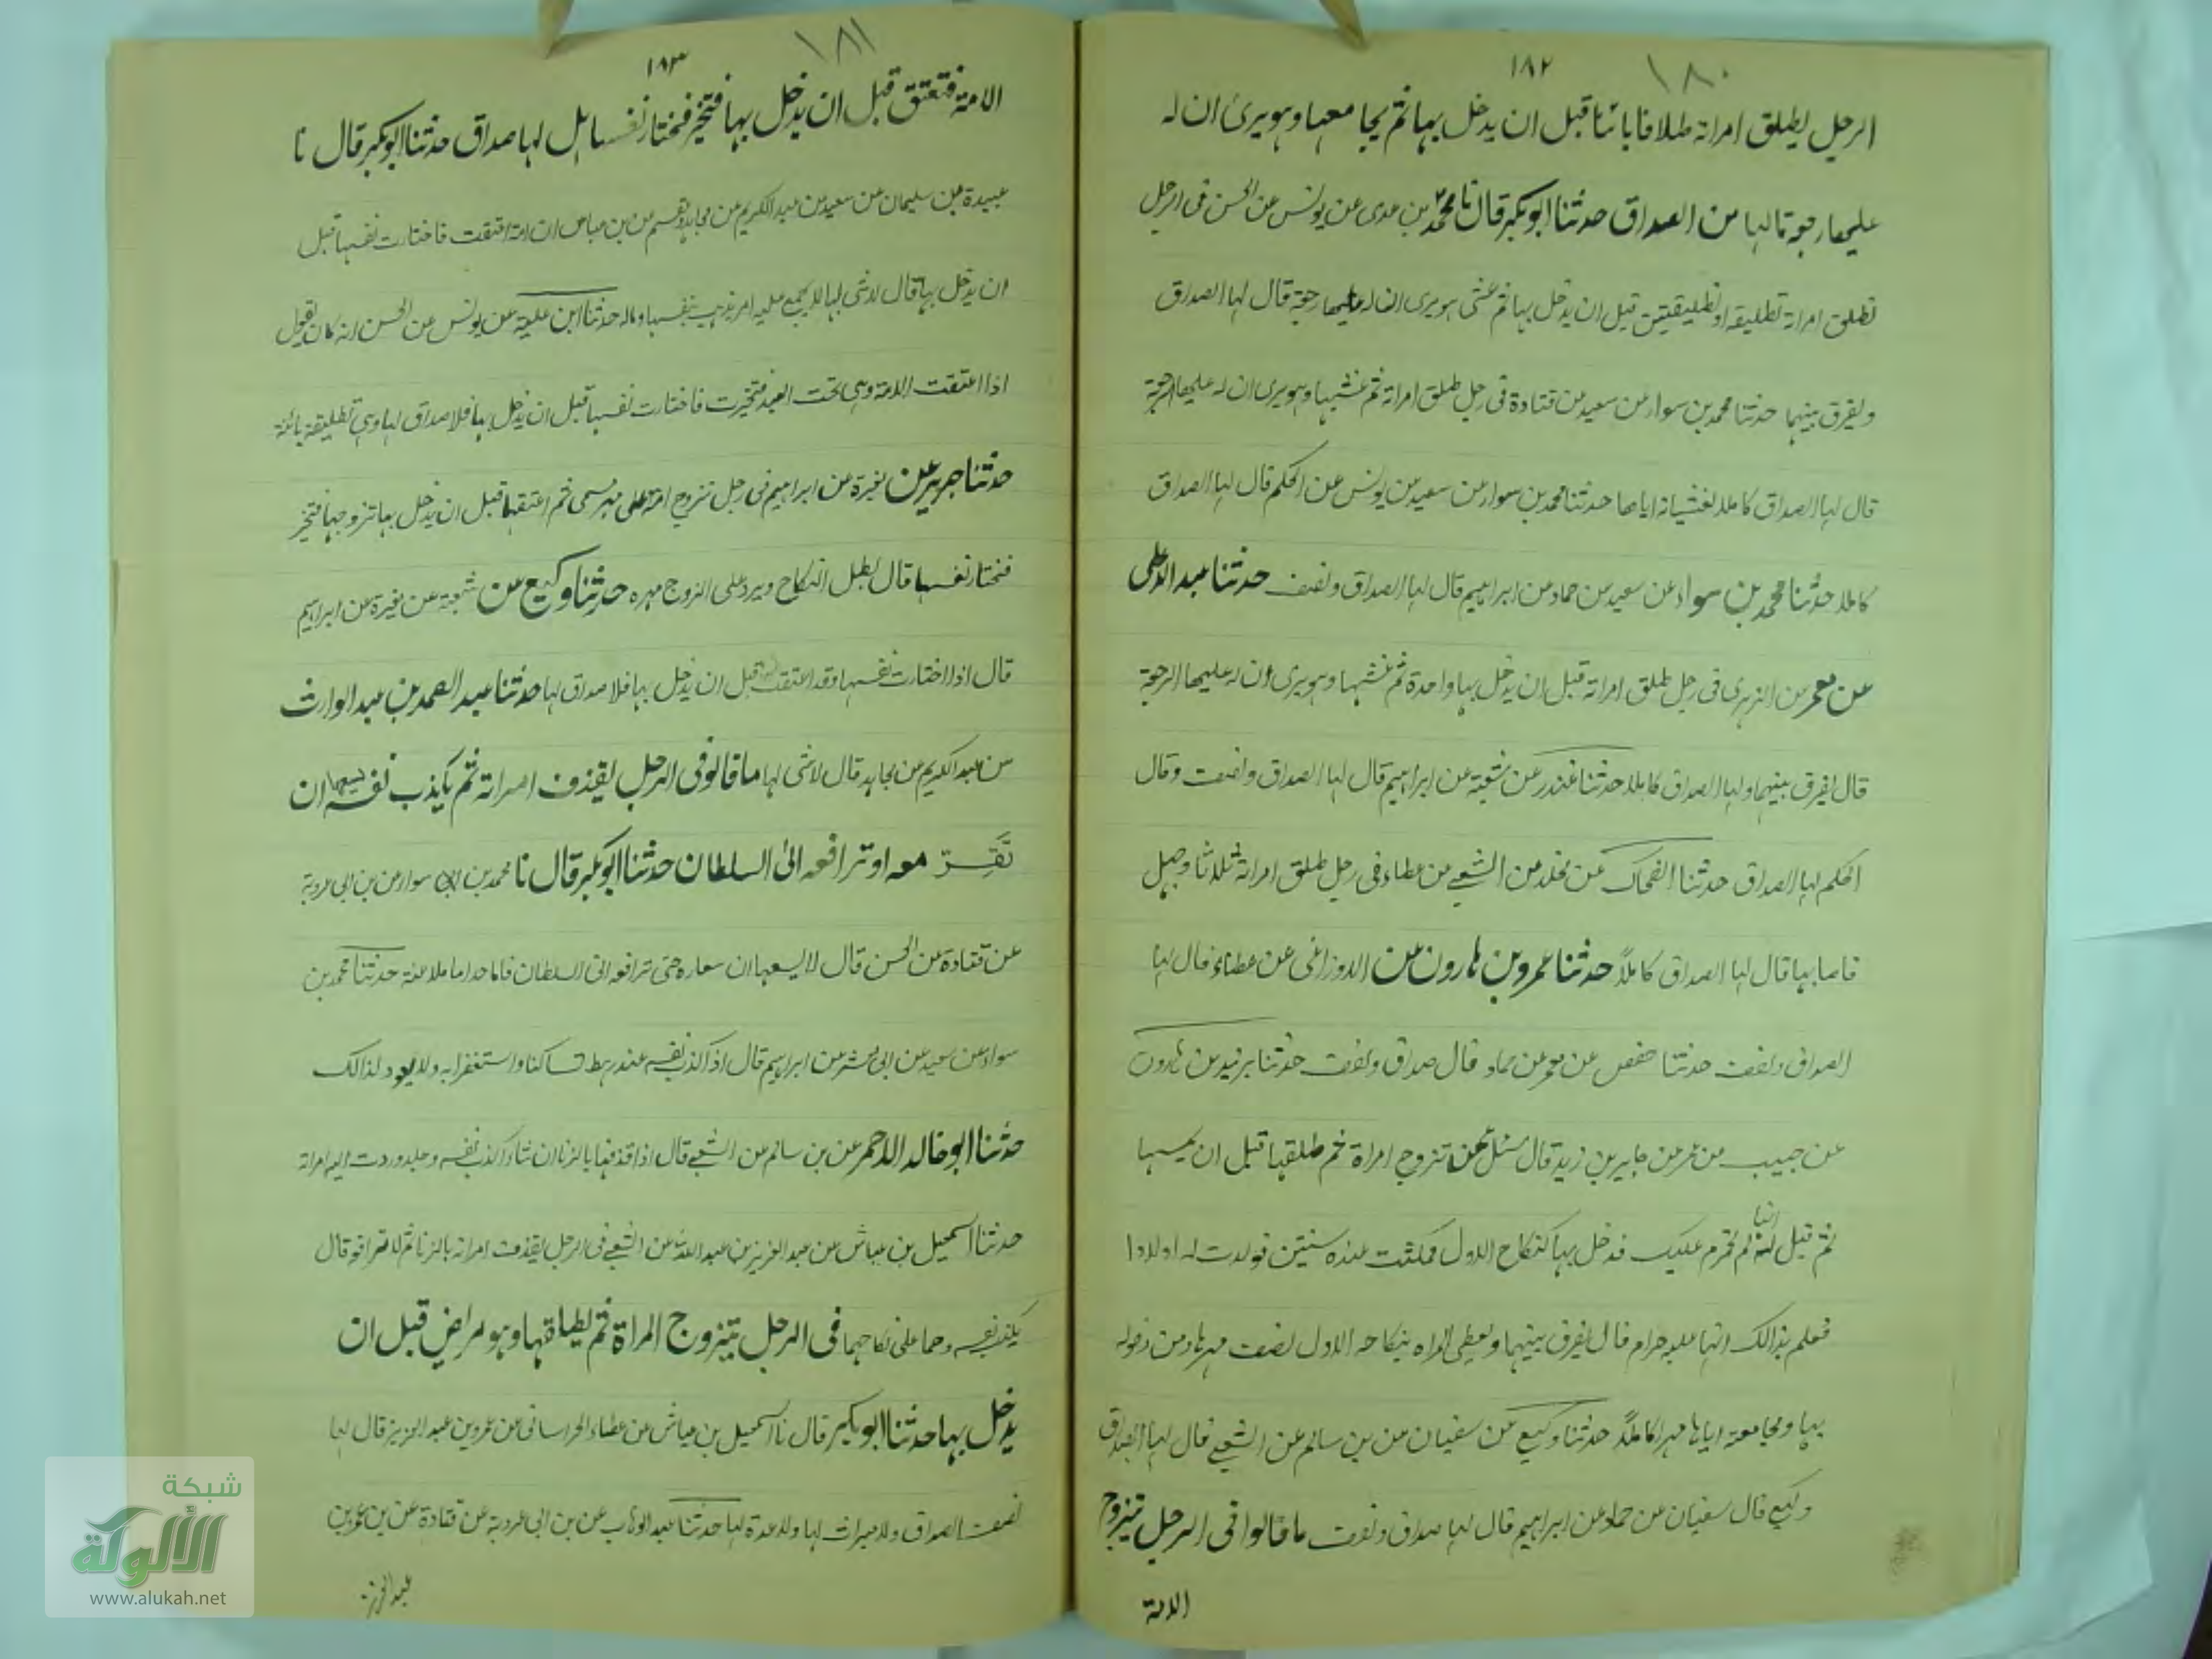 ١٨٠
١٨٢
الرجل يطلق امراته طلاقا بائنا قبل ان يدخل بها ثم يجامعها وهو يرى ان له
عليها رجعة ما لها من الصداق حدثنا ابو بكر قال نا محمد بن عدى عن يونس عن الحسن فى الرجل
تطلق امراته تطليقة او تطليقتين قبل ان يدخل بها ثم غشى هو يرى ان له عليها رجعة قال لها الصداق
ويفرق بينهما حدثنا محمد بن سوار عن سعيد عن قتادة فى رجل طلق امراته ثم غشيها وهو يرى ان له عليها الرجعة
قال لها الصداق كاملا لغشيانه اياها حدثنا محمد بن سوار عن سعيد عن يونس عن الحكم قال لها الصداق
كاملا حدثنا محمد بن سواء عن سعيد عن حماد عن ابراهيم قال لها الصداق ونصف حدثنا عبد الاعلى
عن معمر عن الزهرى فى رجل طلق امراته قبل ان يدخل بها واحدة ثم غشيها وهو يرى ان له عليها الرجعة
قال يفرق بينهما ولها الصداق كاملا حدثنا غندر عن شعبة عن ابراهيم قال لها الصداق ونصف وقال
الحكم لها الصداق حدثنا الضحاك عن مخلد عن الشعبى عن عطاء فى رجل طلق امراته ثلاثا وجهل
فاصابها قال لها الصداق كاملاً حدثنا عمرو بن هارون عن الاوزاعى عن عطاء قال لها
الصداق ونصف حدثنا حفص عن عمر عن حماد قال صداق ونصف حدثنا يزيد بن هارون
عن حبيب عن عمر عن جابر بن زيد قال سئل عن تزوج امراة ثم طلقها قبل ان يمسها
ثم قيل له انها لم تحرم عليك فدخل بها كنكاح الاول فمكثت عنده سنتين فولدت له اولادا
فعلم بذالك انها عليه حرام قال يفرق بينهما ويعطى المراه بنكاحه الاول نصف مهرها ومن دخوله
بها ومجامعته اياها مهرا كاملاً حدثنا وكيع عن سفيان عن بن سالم عن الشعبى قال لها الصداق
وكيع قال سفيان عن حماد عن ابراهيم قال لها صداق ونصف ما قالوا فى الرجل تيزوج
الامة
١٨١
١٨٣
الامة فتعتق قبل ان يدخل بها فتخير فتختار نفسها هل لها صداق حدثنا ابو بكر قال نا
عبيدة بن سليمان عن سعيد عن عبد الكريم عن مجاهد ومقسم عن بن عباس ان امة اعتقت فاختارت نفسها قبل
ان يدخل بها قال لا شى لها لا يجمع عليه امر يذهب بنفسها وماله حدثنا ابن علية عن يونس عن الحسن انه كان يقول
اذا اعتقت الامة وهى تحت العبد فتخيرت فاختارت نفسها قبل ان يدخل بها فلا صداق لها وهي تطليقة بائنة
حدثنا جرير عن مغيرة عن ابراهيم فى رجل تزوج امة على مهر مسمى ثم اعتقها قبل ان يدخل بها تزوجها فتخير
فتختار نفسها قال بطل النكاح ويرد على الزوج مهره حدثنا وكيع عن شعبة عن مغيرة عن ابراهيم
قال اذا اختارت نفسها وقد اعتقت قبل ان يدخل بها فلا صداق لها حدثنا عبد الصمد بن عبد الوارث
عن عبد الكريم عن مجاهد قال لا شى لها ما قالوا فى الرجل يقذف امراته ثم يكذب نفسه ايسعها ان
تَقِرّ معه او ترافعه الى السلطان حدثنا ابو بكر قال نا محمد بن سوار عن بن ابى عروبة
عن قتادة عن الحسن قال لا يسعها ان تساره حتى ترافعه الى السلطان فاما حد اما ملاعنة حدثنا محمد بن
سواء عن سعيد عن ابى معشر عن ابراهيم قال اذا اكذب نفسه عند رهط تساكنا واستغفر ربه ولا يعود لذالك
حدثنا ابو خالد الاحمر عن بن سالم عن الشعبى قال اذا قذفها بالزنا ان شاء اكذب نفسه وجلد وردت اليه امراته
حدثنا اسمعيل بن عياش عن عبد العزيز بن عبد الله عن الشعبى فى الرجل يقذف امراته بالزنا ثم لا ترافعه قال
يكذب نفسه وهما على نكاحهما فى الرجل يتزوج المراة ثم يطلقها وهو مراض قبل ان
يدخل بها حدثنا ابو بكر قال نا اسمعيل بن عياش عن عطاء الخراسانى عن عمرو بن عبد العزيز قال لها
نصف الصداق ولا ميراث لها ولا عدة لها حدثنا عبد الوهاب عن بن ابى عروبة عن قتادة عن بن عمر بن
عبد العزيز
شبكة
الألوكة
www.alukah.net